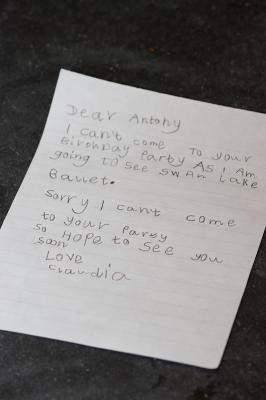 Dear Antony
I can't come to your
Birthday Party As I Am
going to see swan Lake
Ballet.
sorry I can't come
to your Party
so Hope to see you
soon
Love
claudia